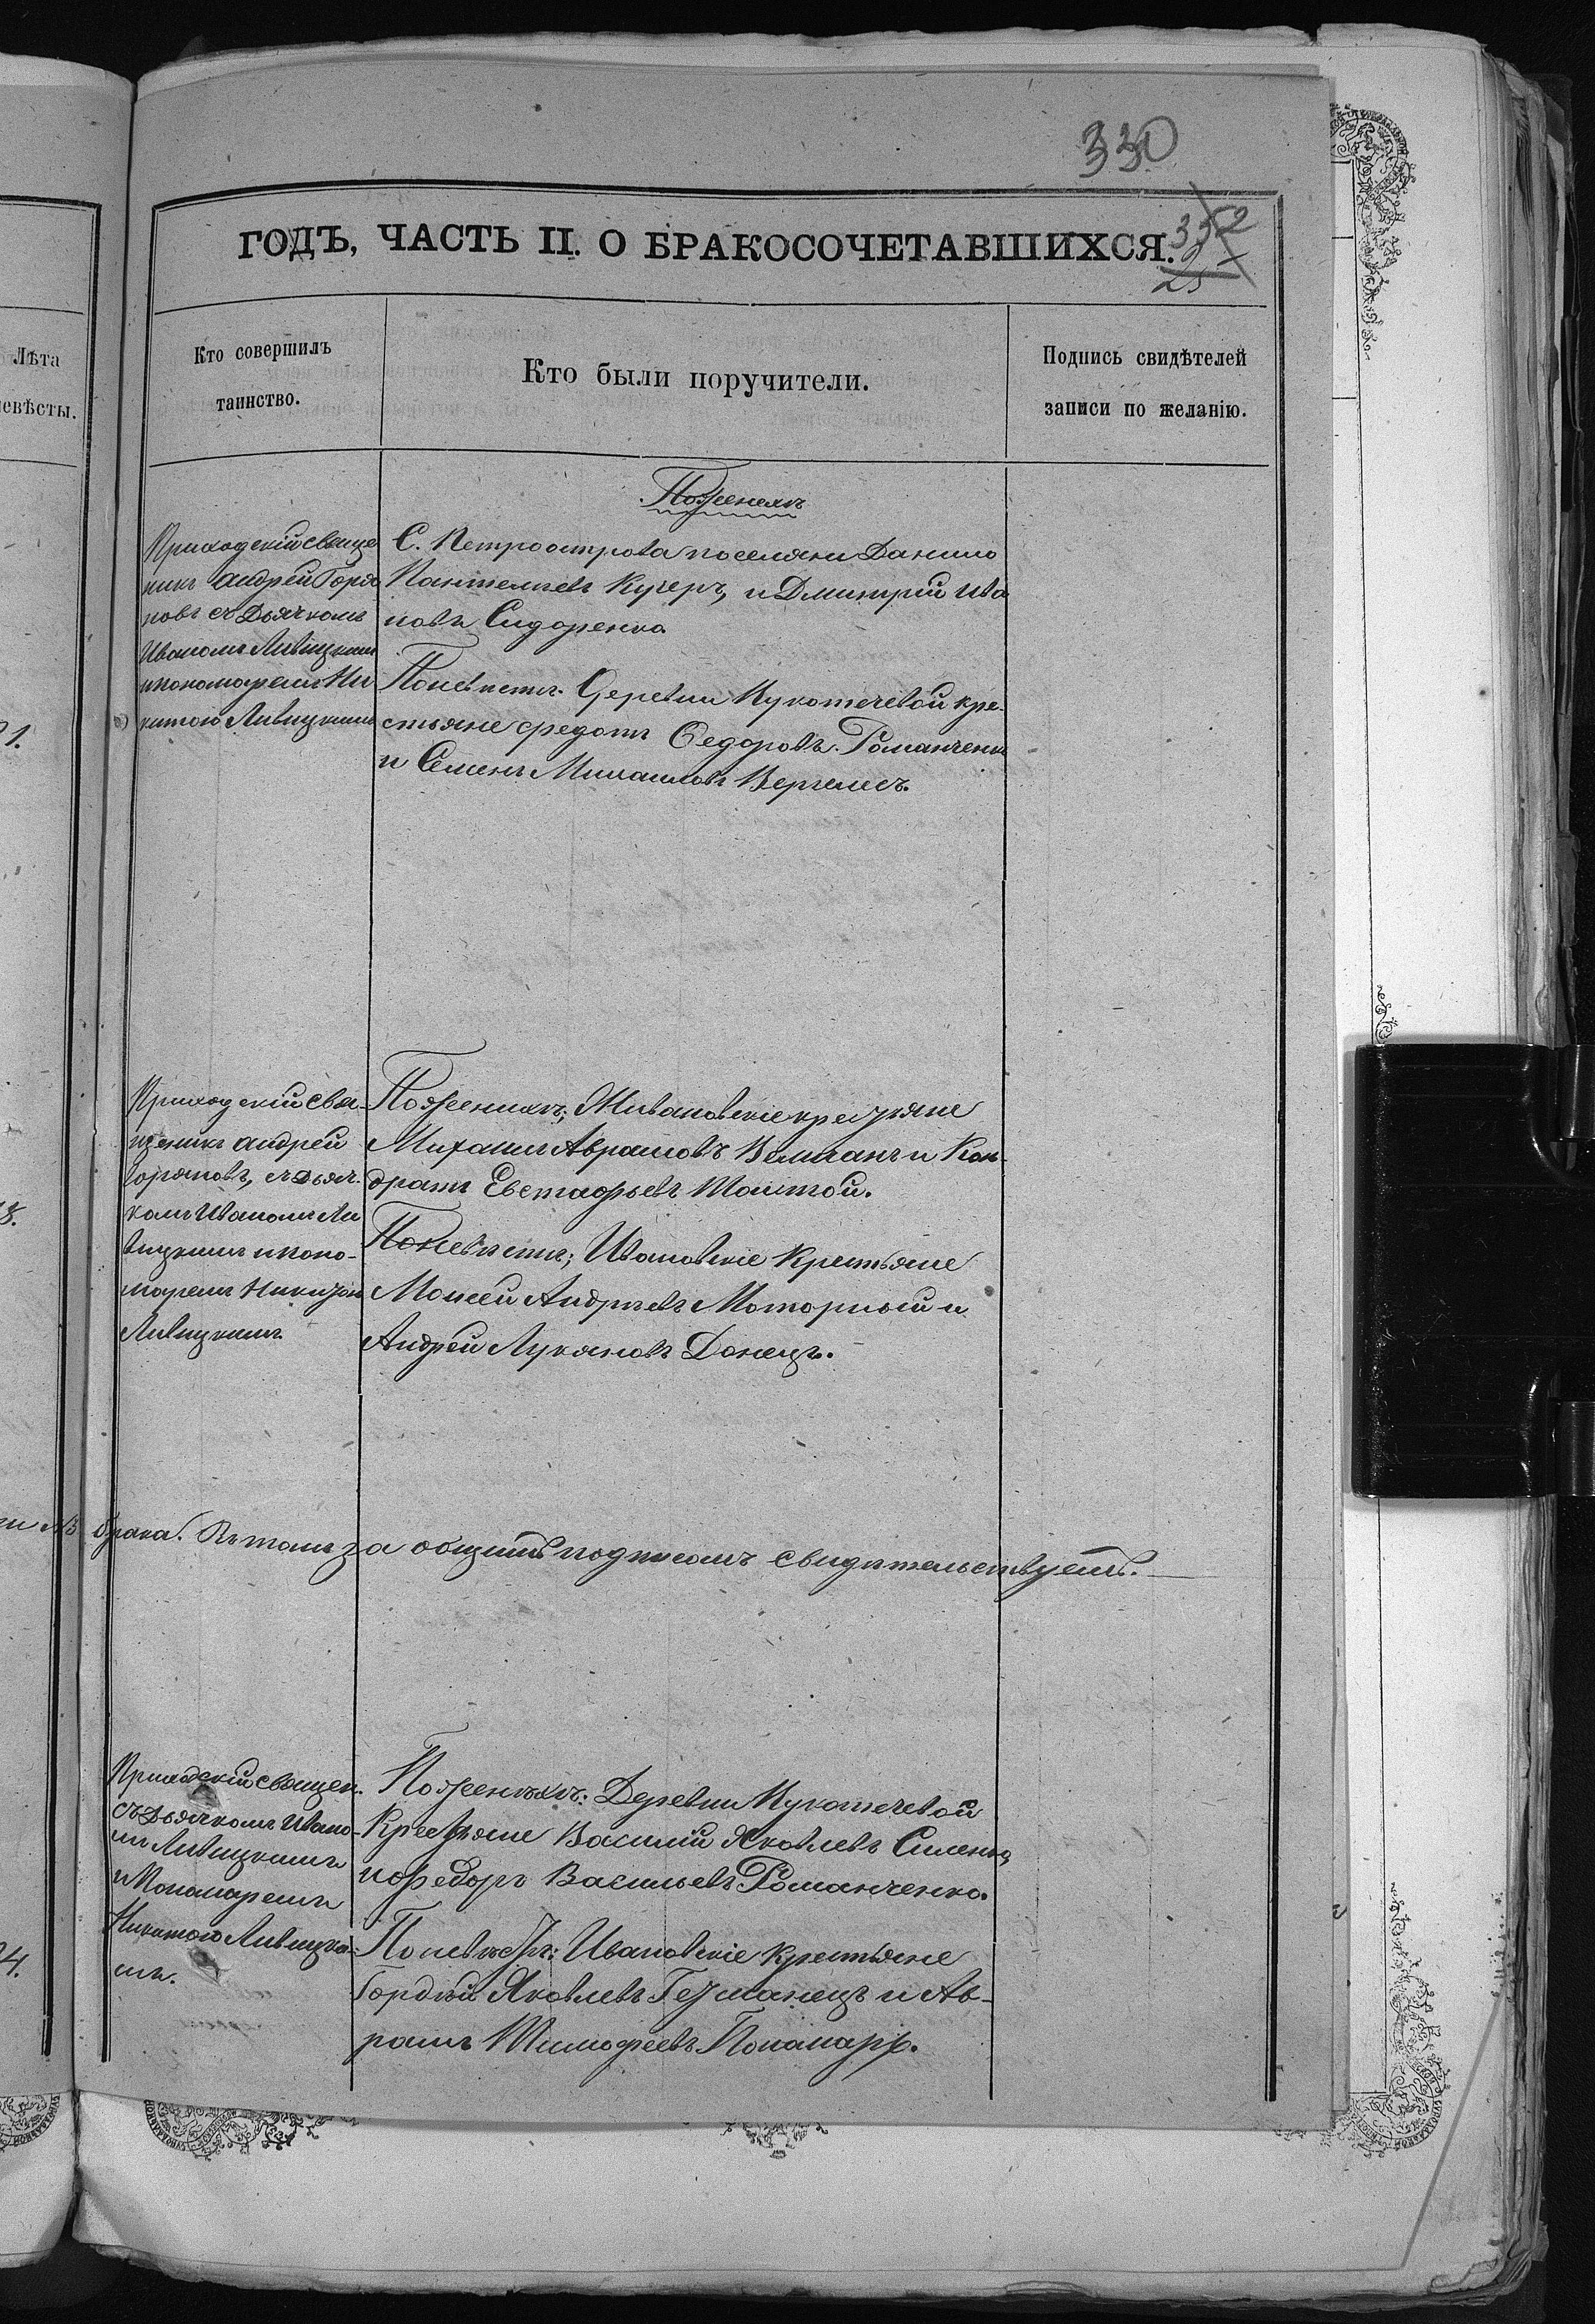 330
352
25
ГОДЪ, ЧАСТЬ II. О БРАКОСОЧЕТАВШИХСЯ.
Лѣта
невѣсты.
Кто совершилъ
таинство.
Кто были поручители.
Подпись свидѣтелей
записи по желанію.
Приходскій свяще
никъ Андрей Горя
новъ съ Дьячкомъ
Иваномъ Ливицкимъ
и пономаремъ Ни
китою Ливицкимъ
Пожених
С. Петроострова поселяни Данило
Пантелѣевъ Кучеръ, и Дмитрій Ива
новъ Сидоренко
Поневѣстѣ. Деревни
крестьяне Федотъ Ѳедоровъ Романченко
и Семенъ Михаиловъ Вергелесъ.
Приходскій Свя-
щеникъ Андрей
Горяновъ, съ Дьяч-
комъ Иваномъ Ли
вицкимъ и поно-
маремъ Никитою
Ливицкимъ
Поженихѣ; крестьяне
Михаилъ Аврамовъ и Кон-
дратъ Евстафьевъ
Поневѣстѣ; Ивановскіе крестьяне
Моисей Андрѣевъ Моторный и
Андрей Лукяновъ Донецъ.
брака. Въ томъ за общимъ подписомъ свидѣтельствуемъ.
Приходскій священ.
съ Дьячкомъ Ивано-
мъ Ливицкимъ
и Понамаремъ
Никитою Ливицки-
мъ.
Поженихѣ: Деревни
Крестьяне Василій Яковлевъ
и Федоръ Васильевъ Романченко.
Поневѣстѣ: Ивановскіе крестьяне
Гордѣй Яковлевъ и Ав-
рамъ Тимофеевъ Понамарь.